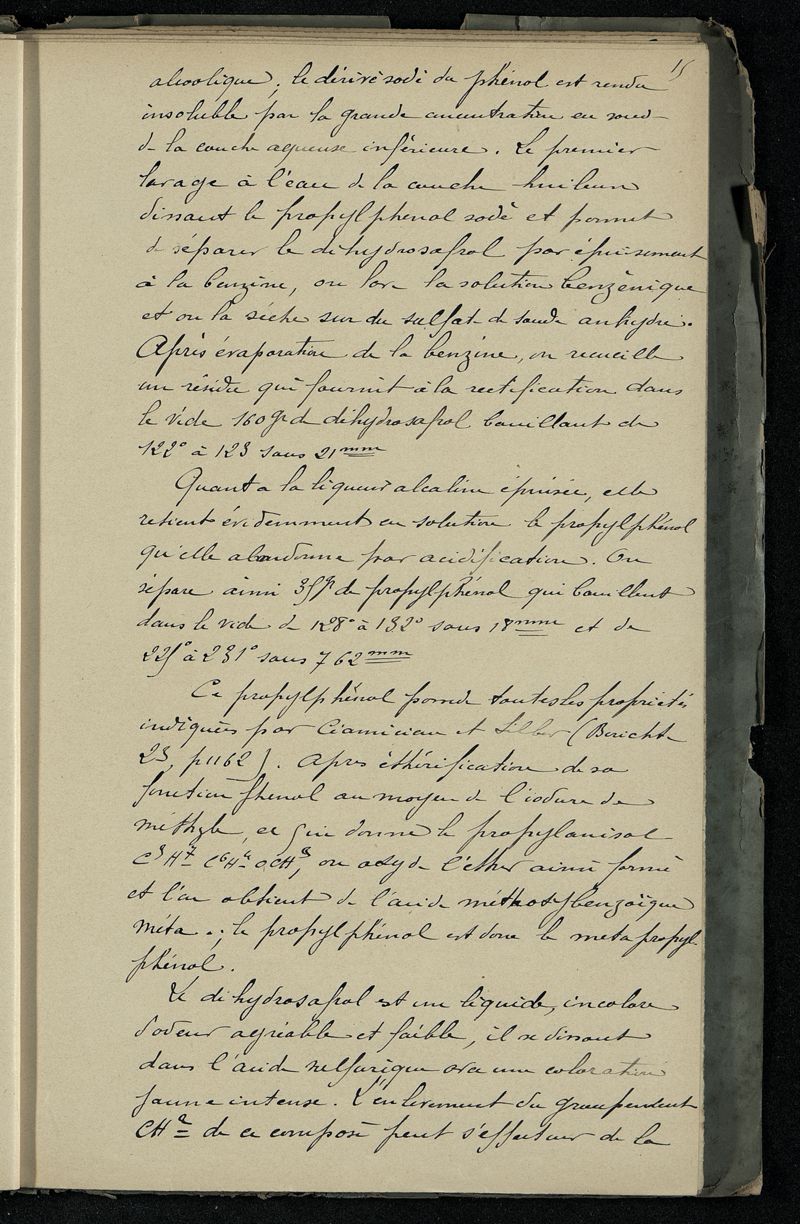 15
alcoolique, le dérivé sodé du phénol est rendu
insoluble par la grande concentration en soude
de la couche aqueuse inférieure. Le premier
lavage à l'eau de la couche huileuse
dissout le propylphenol sodé et permet
de séparer le dihydrosafrol par épuisement
à la benzine, on lave la solution benzénique
et on la sèche sur du sulfate de soude anhydre.
Après évaporation de la benzine, on recueille
un résidu qui fournit à la rectification dans
le vide 160 gr de dihydrosafrol bouillant de
122° à 123 sous 21 mm
Quant a la liqueur alcaline épuisée, elle
retient évidemment en solution le propylphénol
qu'elle abandonne par acidification. On
sépare ainsi 35 gr de propylphénol qui bouillent
dans le vide de 128° à 132° sous 18 mm et de
225° à 231° sous 762 mm
Ce propylphénol possède toutes les propriétés
indiquées par Ciamician et Silber (Berichte
23, p 1162). Après éthérification de sa
fonction phenol au moyen de l'iodure de
méthyle, ce qui donne le propylanisol
C³H⁷_C⁶H⁴_OCH³, on oxyde l'éther ainsi formé
et l'on obtient de l'acide méthoxybenzoïque
méta.; le propylphénol est donc le metapropyl-
phénol.
Le dihydrosafrol est un liquide, incolore
d'odeur agréable et faible, il se dissout
dans l'acide sulfurique avec une coloration
jaune intense. L'enlèvement du groupement
CH² = de ce composé peut s'effectuer de la